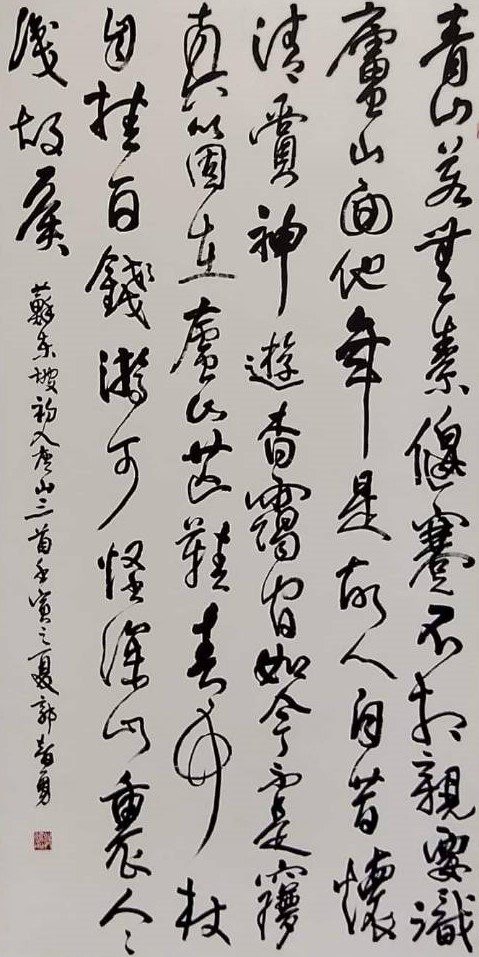 青山若無素偃蹇不相親要識
廬山面他年是故人自昔懷
清賞神遊杳靄間如今不是夢
真個在廬山芒鞋青竹杖
自挂百錢游可怪深山裏人々
識故侯
蘇東坡初入廬山三首壬寅之夏郭勇